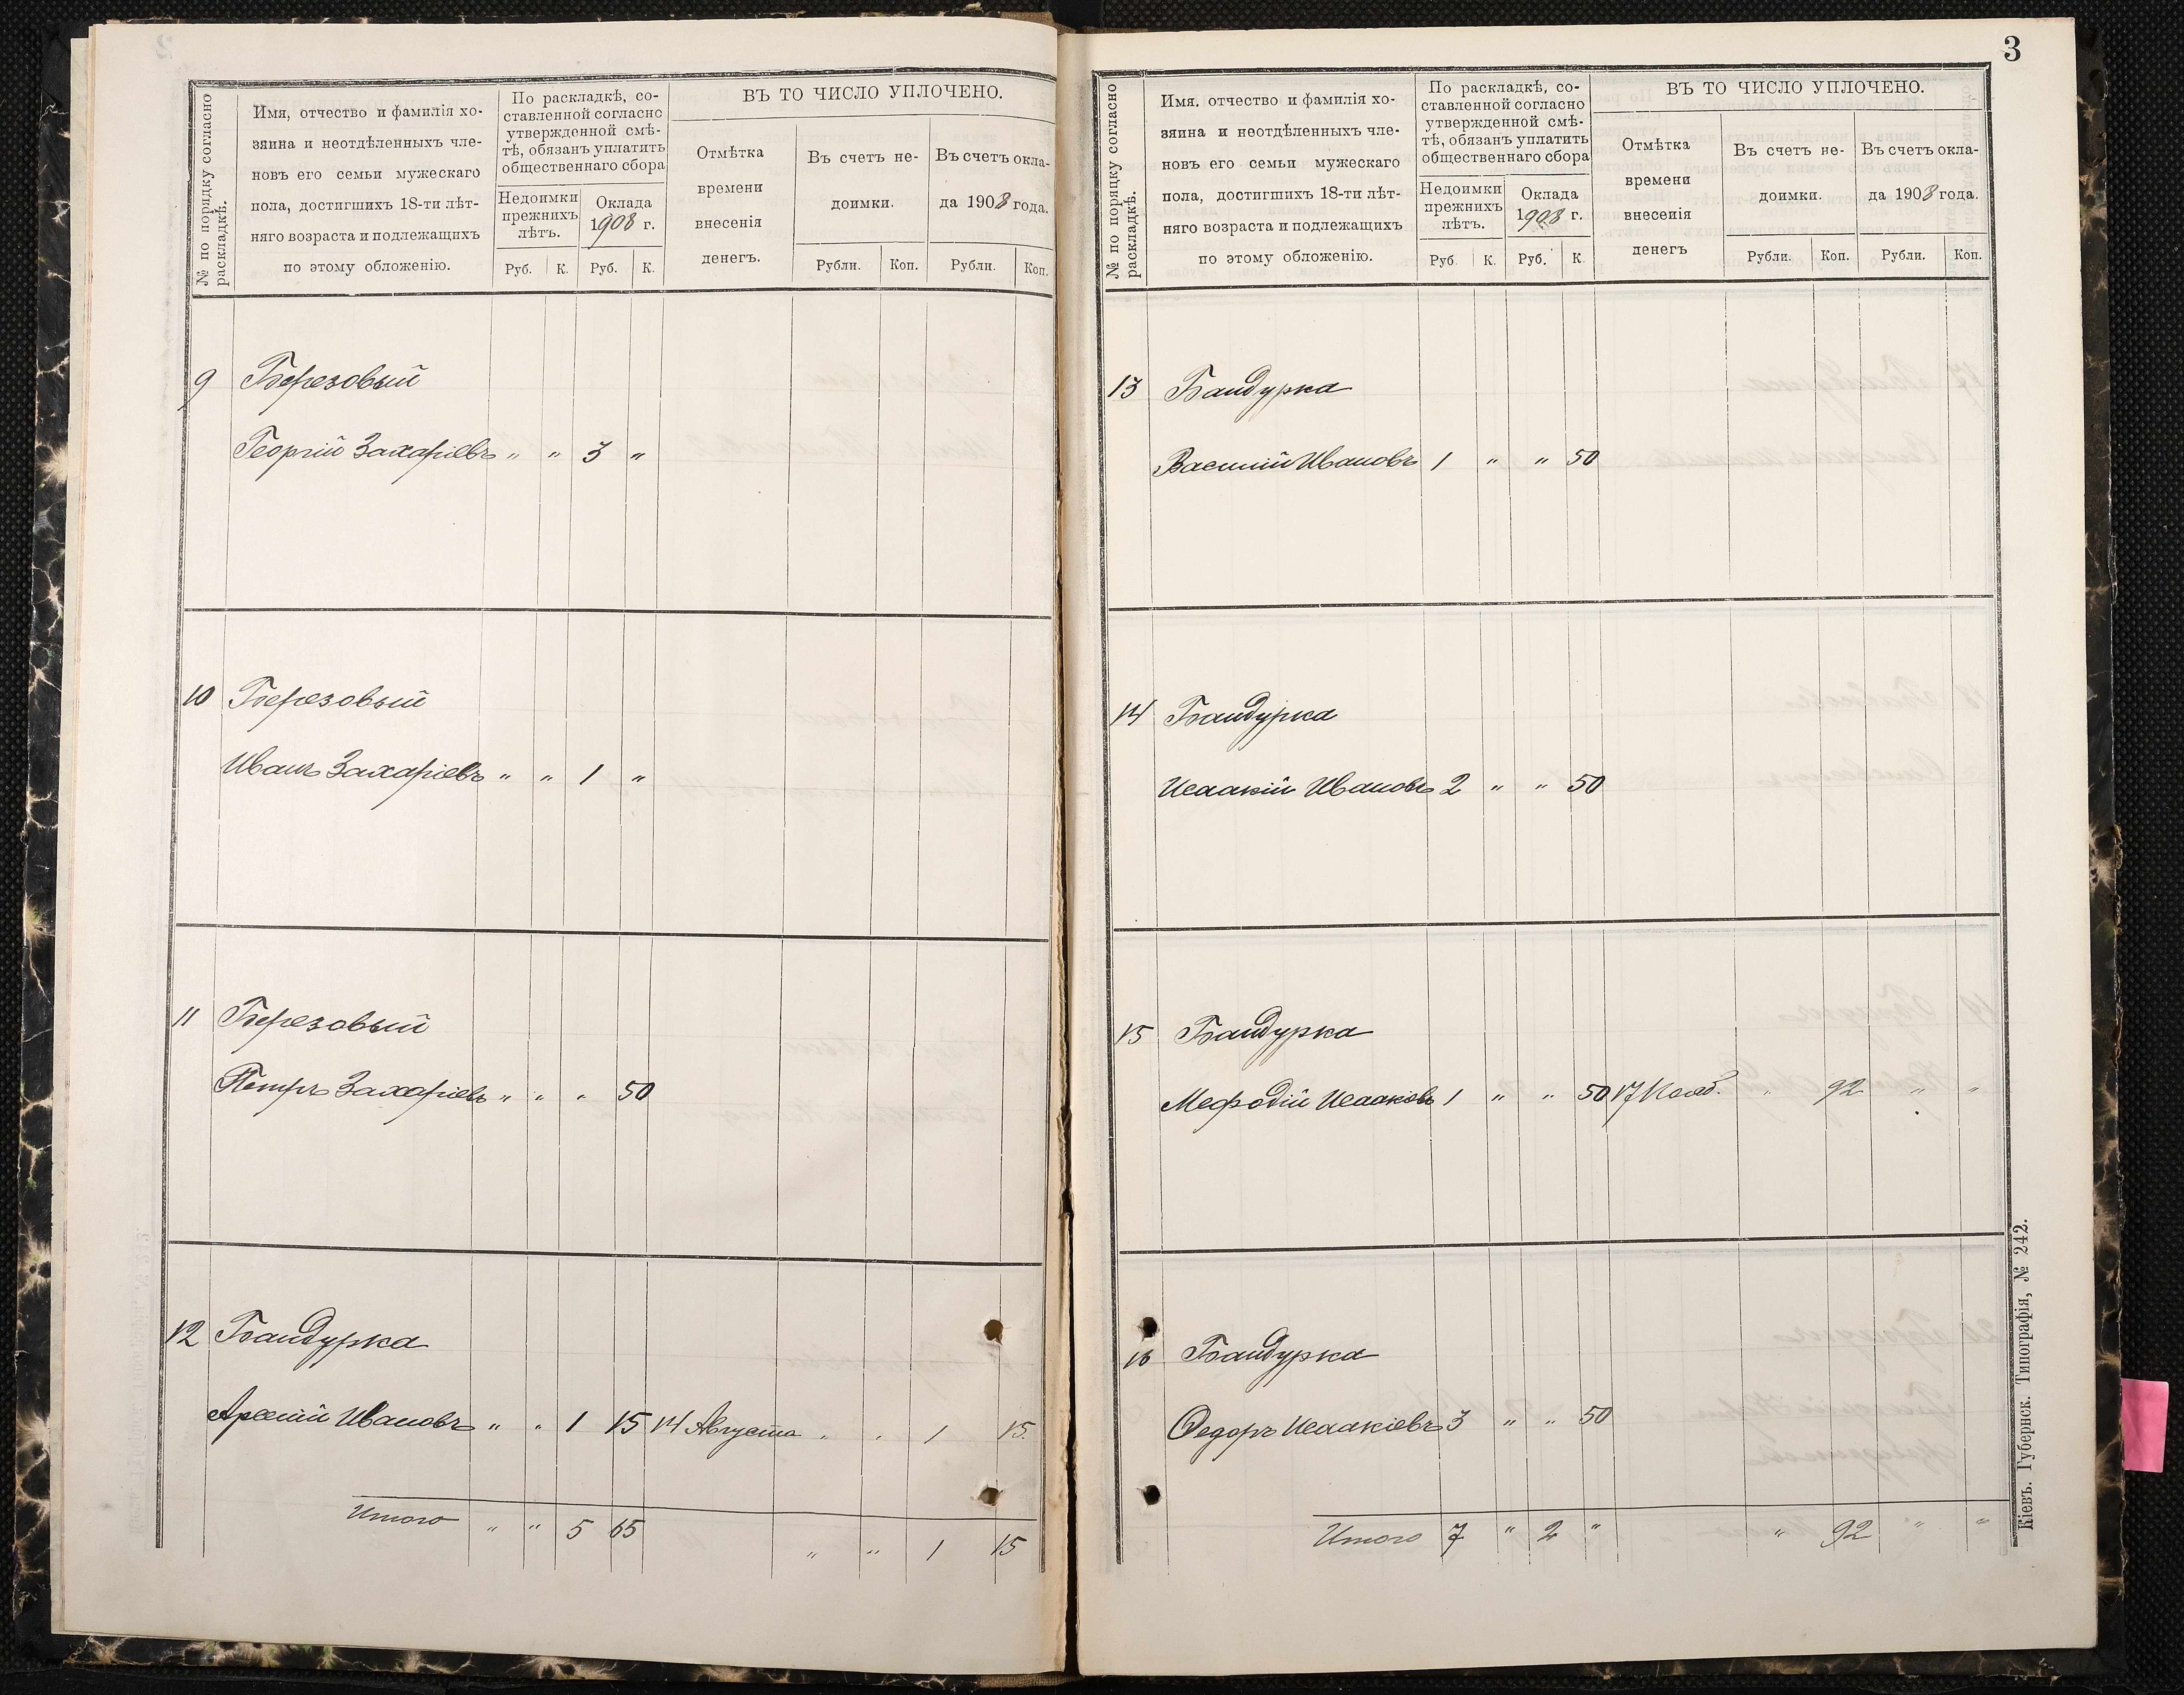 № по порядку согласно раскладкѣ.
Имя, отчество и фамилія хо-
зяина и неотдѣленныхъ чле-
новъ его семьи мужескаго
пола, достигшихъ 18-ти лѣт-
няго возраста и подлежащихъ
по этому обложенію.
По раскладкѣ, со-
ставленной согласно
утвержденной смѣ-
тѣ, обязанъ уплатить
общественнаго сбора
Недоимки
прежнихъ
лѣтъ.
Оклада
1908 г.
Руб. К. Руб. К.
ВЪ ТО ЧИСЛО УПЛОЧЕНО.
Отмѣтка
времени
внесенія
денегъ.
Въ счетъ не-
доимки.
Въ счетъ окла-
да 1908 года.
Рубли. Коп. Рубли. Коп.
9 Березовый
Георгій Захаріевъ " " 3 "
10 Березовый
Иванъ Захаріевъ " " 1 "
11 Березовый
Петръ Захаріевъ " " " 50
12 Бандурка
Арсеній Ивановъ " " 1 15 14 Августа " " 1 15.
Итого " " 5 65 " " 1 15
3
№ по порядку согласно раскладкѣ.
Имя. отчество и фамилія хо-
зяина и неотдѣленныхъ чле-
новъ его семьи мужескаго
пола, достигшихъ 18-ти лѣт-
няго возраста и подлежащихъ
по этому обложенію.
По раскладкѣ, со-
ставленной согласно
утвержденной смѣ-
тѣ, обязанъ уплатить
общественнаго сбора
Недоимки
прежнихъ
лѣтъ.
Оклада
1908 г.
Руб. К. Руб. К.
ВЪ ТО ЧИСЛО УПЛОЧЕНО.
Отмѣтка
времени
внесенія
денегъ
Въ счетъ не-
доимки.
Въ счетъ окла-
да 1908 года.
Рубли. Коп. Рубли. Коп.
13 Бандурка
Василій Ивановъ 1 " " 50
14 Бандурка
Исаакій Ивановъ 2 " " 50
15 Бандурка
Мефодій Исааковъ 1 " " 50 17 Нояб. " 92 " "
16 Бандурка
Ѳедоръ Исаакіевъ 3 " " 50
Итого 7 " 2 " " 92 " "
Кіевъ. Губернск. Типографія, № 242.